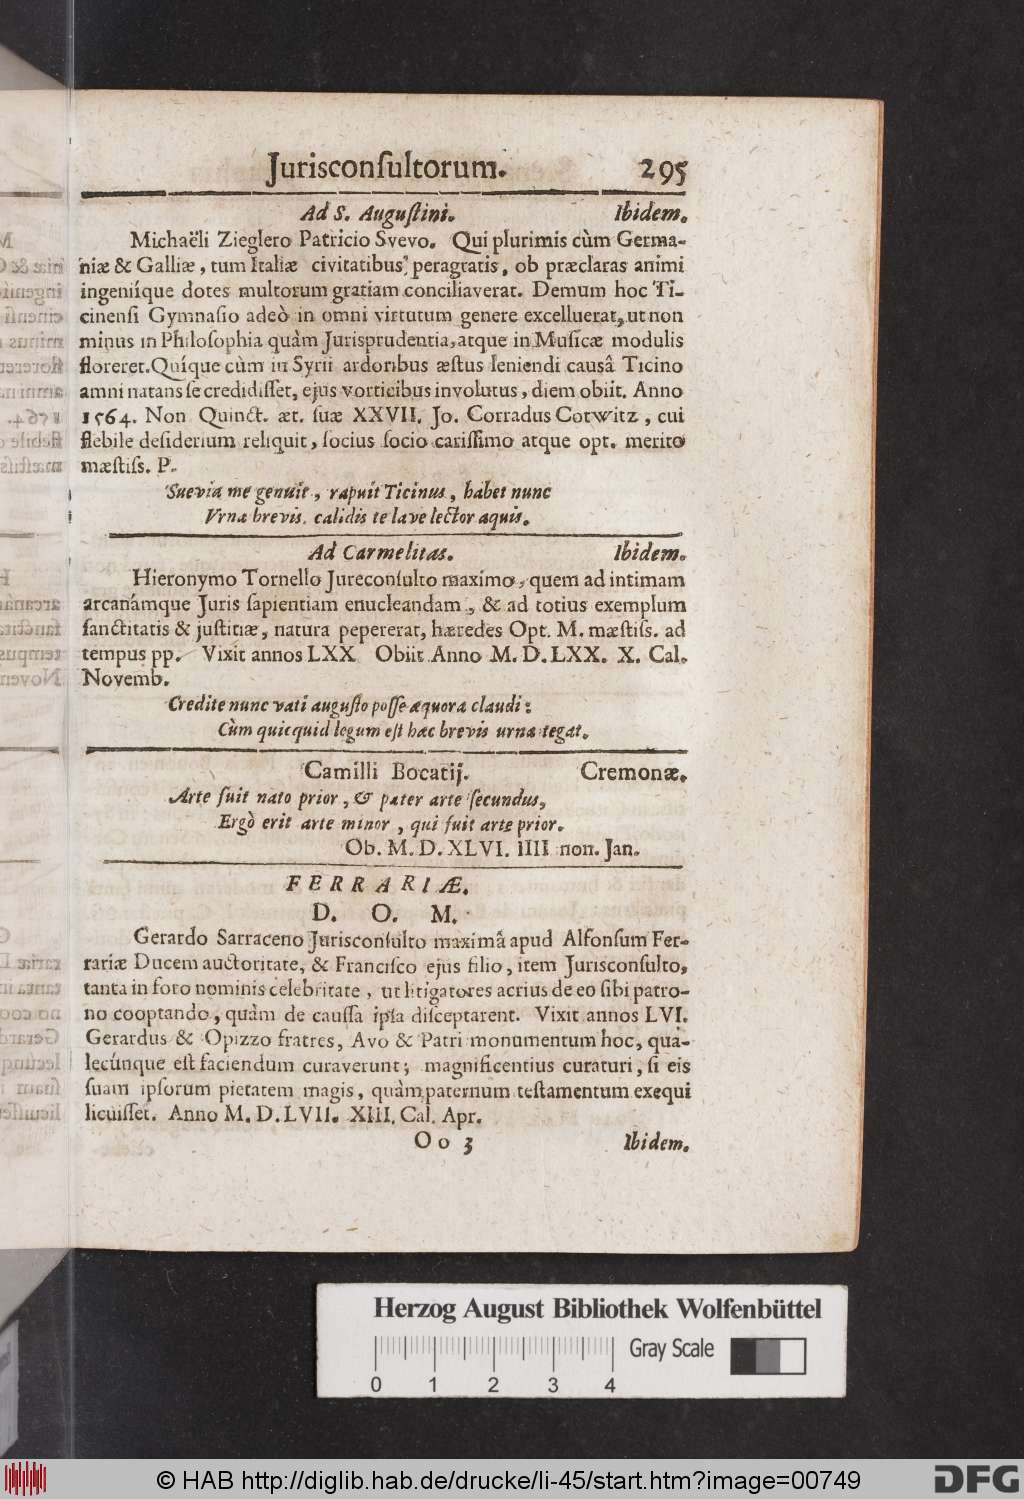 Jurisconſultorum. 295
Ad S. Auguſtini. Ibidem.
Michaëli Zieglero Patricio Svevo. Qui plurimis cùm Germa-
niæ & Galliæ, tum Italiæ civitatibus, peragratis, ob præclaras animi
ingeniíque dotes multorum gratiam conciliaverat. Demum hoc Ti-
cinenſi Gymnaſio adeò in omni virtutum genere excelluerat, ut non
minus in Philoſophia quàm Jurisprudentia, atque in Muſicæ modulis
floreret. Quíque cùm in Syrii ardoribus æſtus leniendi causâ Ticino
amni natans ſe credidiſſet, ejus vorticibus involutus, diem obiit. Anno
1564. Non Quinct. æt. ſuæ XXVII. Jo. Corradus Cotwitz, cui
flebile deſiderium reliquit, ſocius ſocio cariſſimo atque opt. merito
mæſtiſs. P.
Suevia me genuit, rapuit Ticinus, habet nunc
Vrna brevis. calidis te lave lector aquis.
Ad Carmelitas. Ibidem.
Hieronymo Tornello Jureconſulto maximo, quem ad intimam
arcanámque Juris ſapientiam enucleandam, & ad totius exemplum
ſanctitatis & juſtitiæ, natura pepererat, hæredes Opt. M. mæſtiſs. ad
tempus pp. Vixit annos LXX Obiit Anno M. D. LXX. X. Cal.
Novemb.
Credite nunc vati auguſto poſſe æquora claudi:
Cùm quicquid legum eſt hæc brevis urna tegat.
Camilli Bocatij. Cremonæ.
Arte fuit nato prior, & pater arte ſecundus,
Ergò erit arte minor, qui fuit arte prior.
Ob. M. D. XLVI. IIII non. Jan.
FERRARIÆ.
D. O. M.
Gerardo Sarraceno Jurisconſulto maximâ apud Alfonſum Fer-
rariæ Ducem auctoritate, & Franciſco ejus filio, item Jurisconſulto,
tanta in foro nominis celebritate, ut litigatores acrius de eo ſibi patro-
no cooptando, quàm de cauſſa ipſa diſceptarent. Vixit annos LVI.
Gerardus & Opizzo fratres, Avo & Patri monumentum hoc, qua-
lecúnque eſt faciendum curaverunt; magnificentius curaturi, ſi eis
ſuam ipſorum pietatem magis, quàm paternum teſtamentum exequi
licuiſſet. Anno M. D. LVII. XIII. Cal. Apr.
Oo 3 Ibidem.
Herzog August Bibliothek Wolfenbüttel
Gray Scale
0 1 2 3 4
© HAB http://diglib.hab.de/drucke/li-45/start.htm?image=00749
DFG